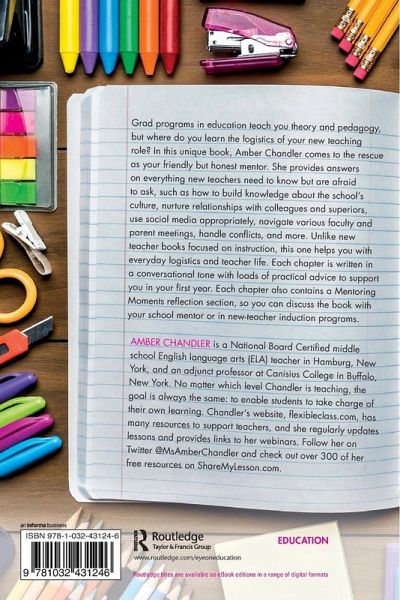 Grad programs in education teach you theory and pedagogy,
but where do you learn the logistics of your new teaching
role? In this unique book, Amber Chandler comes to the rescue
as your friendly but honest mentor. She provides answers
on everything new teachers need to know but are afraid
to ask, such as how to build knowledge about the school's
culture, nurture relationships with colleagues and superiors,
use social media appropriately, navigate various faculty and
parent meetings, handle conflicts, and more. Unlike new
teacher books focused on instruction, this one helps you with
everyday logistics and teacher life. Each chapter is written in
a conversational tone with loads of practical advice to support
you in your first year. Each chapter also contains a Mentoring
Moments reflection section, so you can discuss the book with
your school mentor or in new-teacher induction programs.
AMBER CHANDLER is a National Board Certified middle
school English language arts (ELA) teacher in Hamburg, New
York, and an adjunct professor at Canisius College in Buffalo,
New York. No matter which level Chandler is teaching, the
goal is always the same: to enable students to take charge of
their own learning. Chandler's website, flexibleclass.com, has
many resources to support teachers, and she regularly updates
lessons and provides links to her webinars. Follow her on
Twitter @MsAmberChandler and check out over 300 of her
free resources on ShareMyLesson.com.
an informa business
ISBN 978-1-032-43124-6
9 781032 431246
Routledge
Taylor & Francis Group
www.routledge.com/eyeoneducation
Routledge titles are available as eBook editions in a range of digital formats
EDUCATION